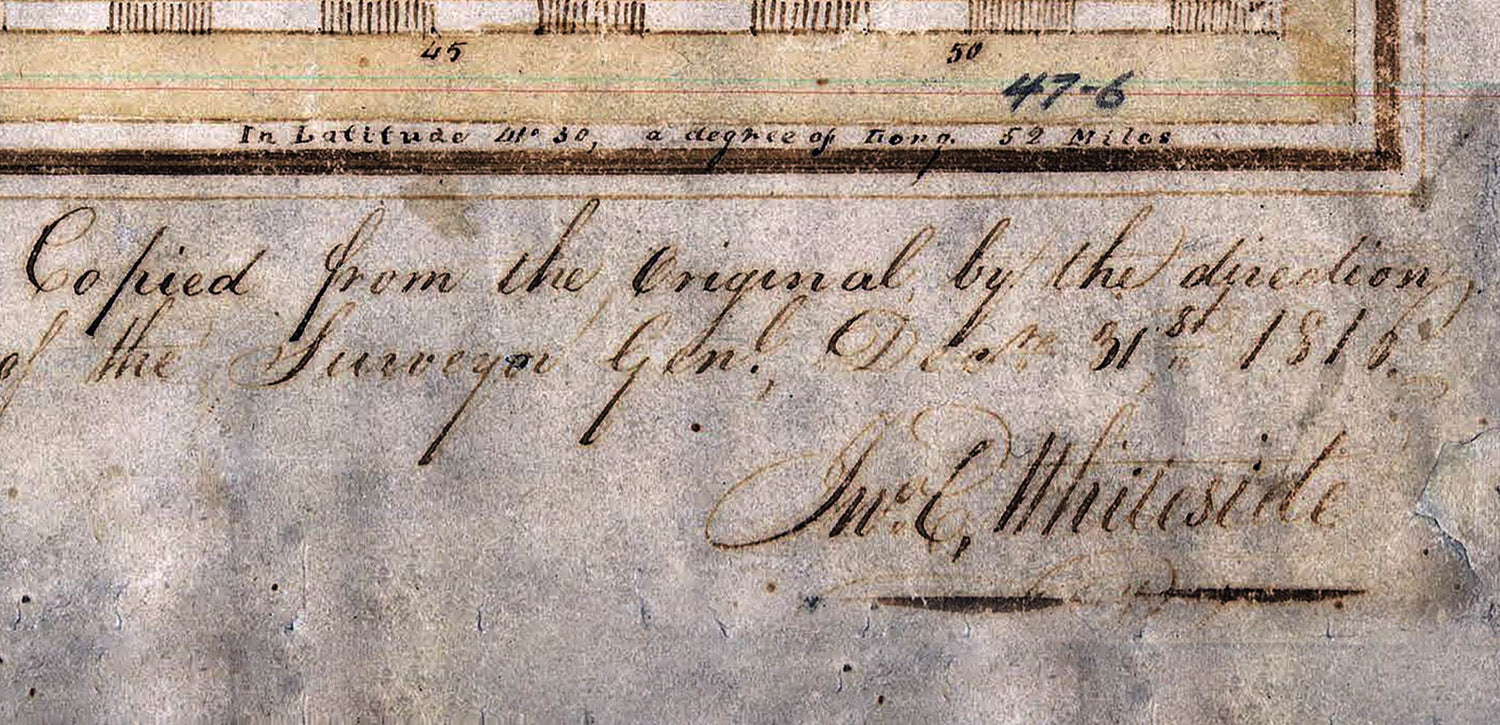 45 50
47-6
In Latitude 41° 30, a degree of Long. 52 Miles
Copied from the Original by the direction,
of the Surveyor Genl., Decr. 31st 1816.
Jno. C, Whiteside